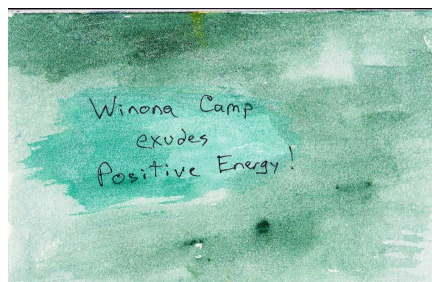 Winona Camp
exudes
Positive Energy!